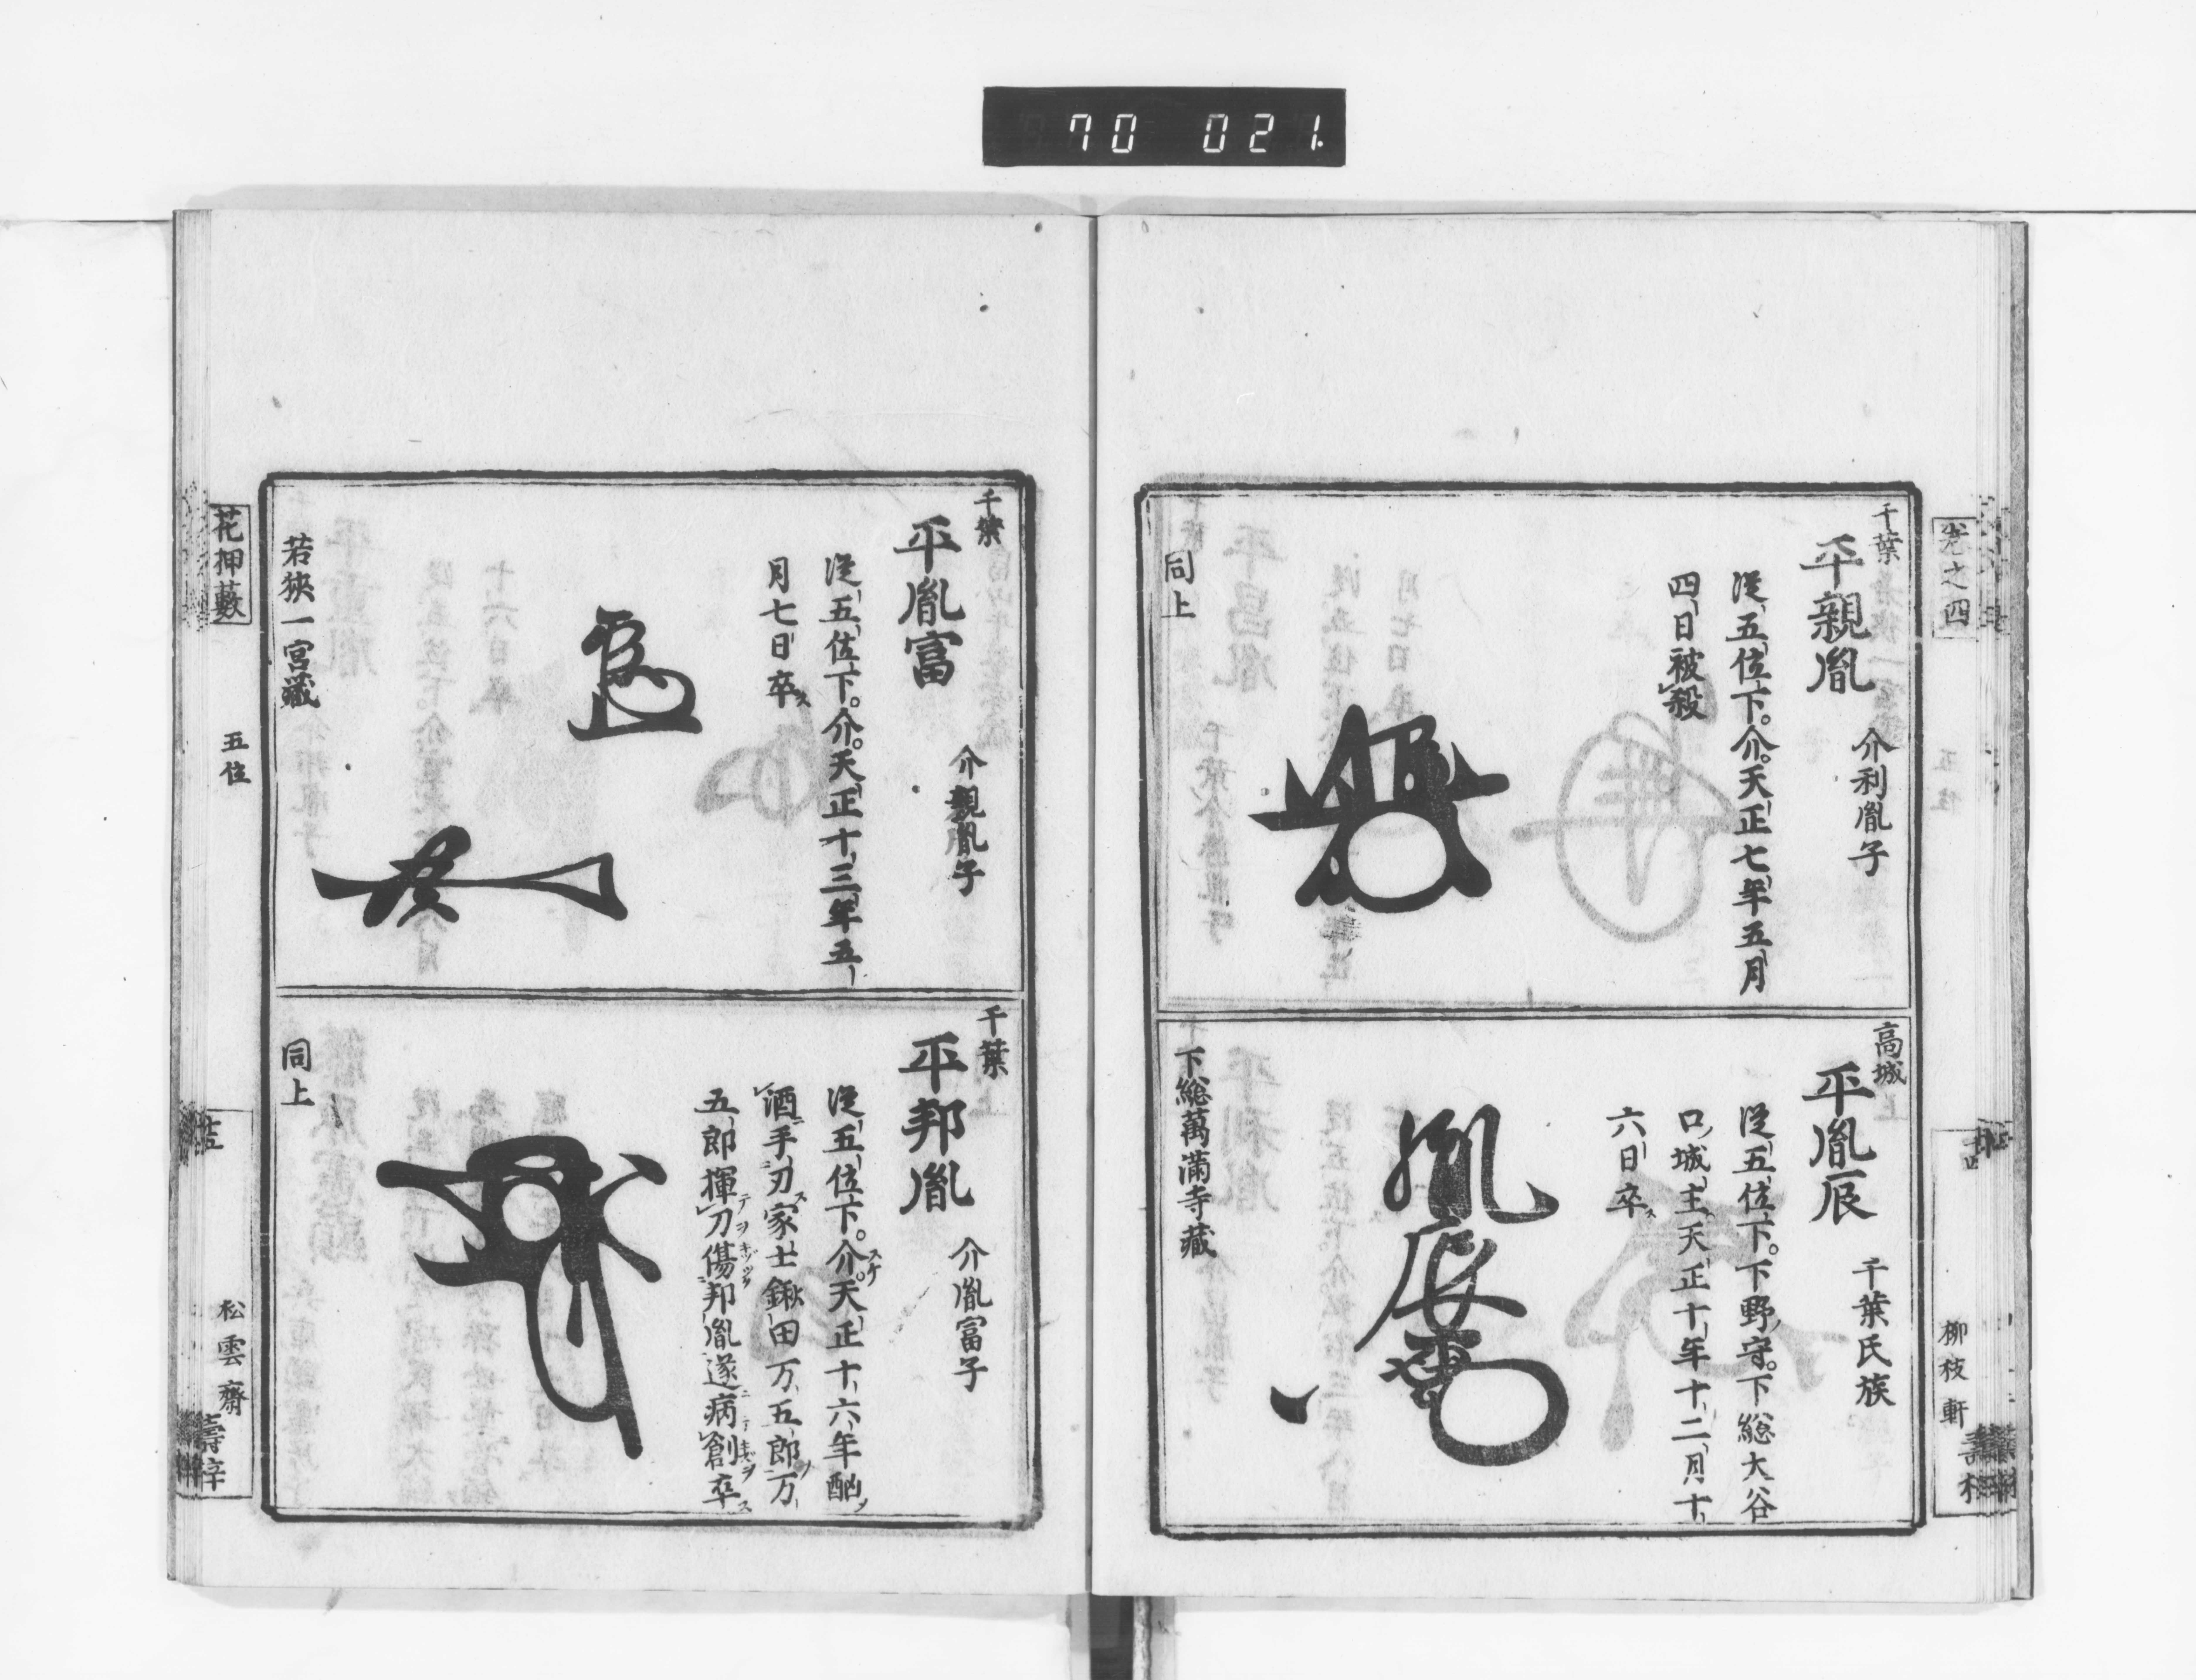 70 021.
卷之四
柳枝軒
千葉
平親胤
介利胤子
從五位下。介。天正七年五月
四日被殺
同上
高城
平胤辰
千葉氏族
從五位下。下野守。下総大谷
口城主天正十年十二月十
六日卒ス
胤辰
下総萬滿寺藏
千葉
平胤富
介親胤子
從五位下。介。天正十三年五
月七日卒ス
若狹一宮藏
千葉
平邦胤
介胤富子
從五位下。介。天正十六年酗
酒手刃家士鍬田万五郎万
五郎揮刀傷邦胤遂病創卒
同上
花押藪
五位
松雲齋
壽梓